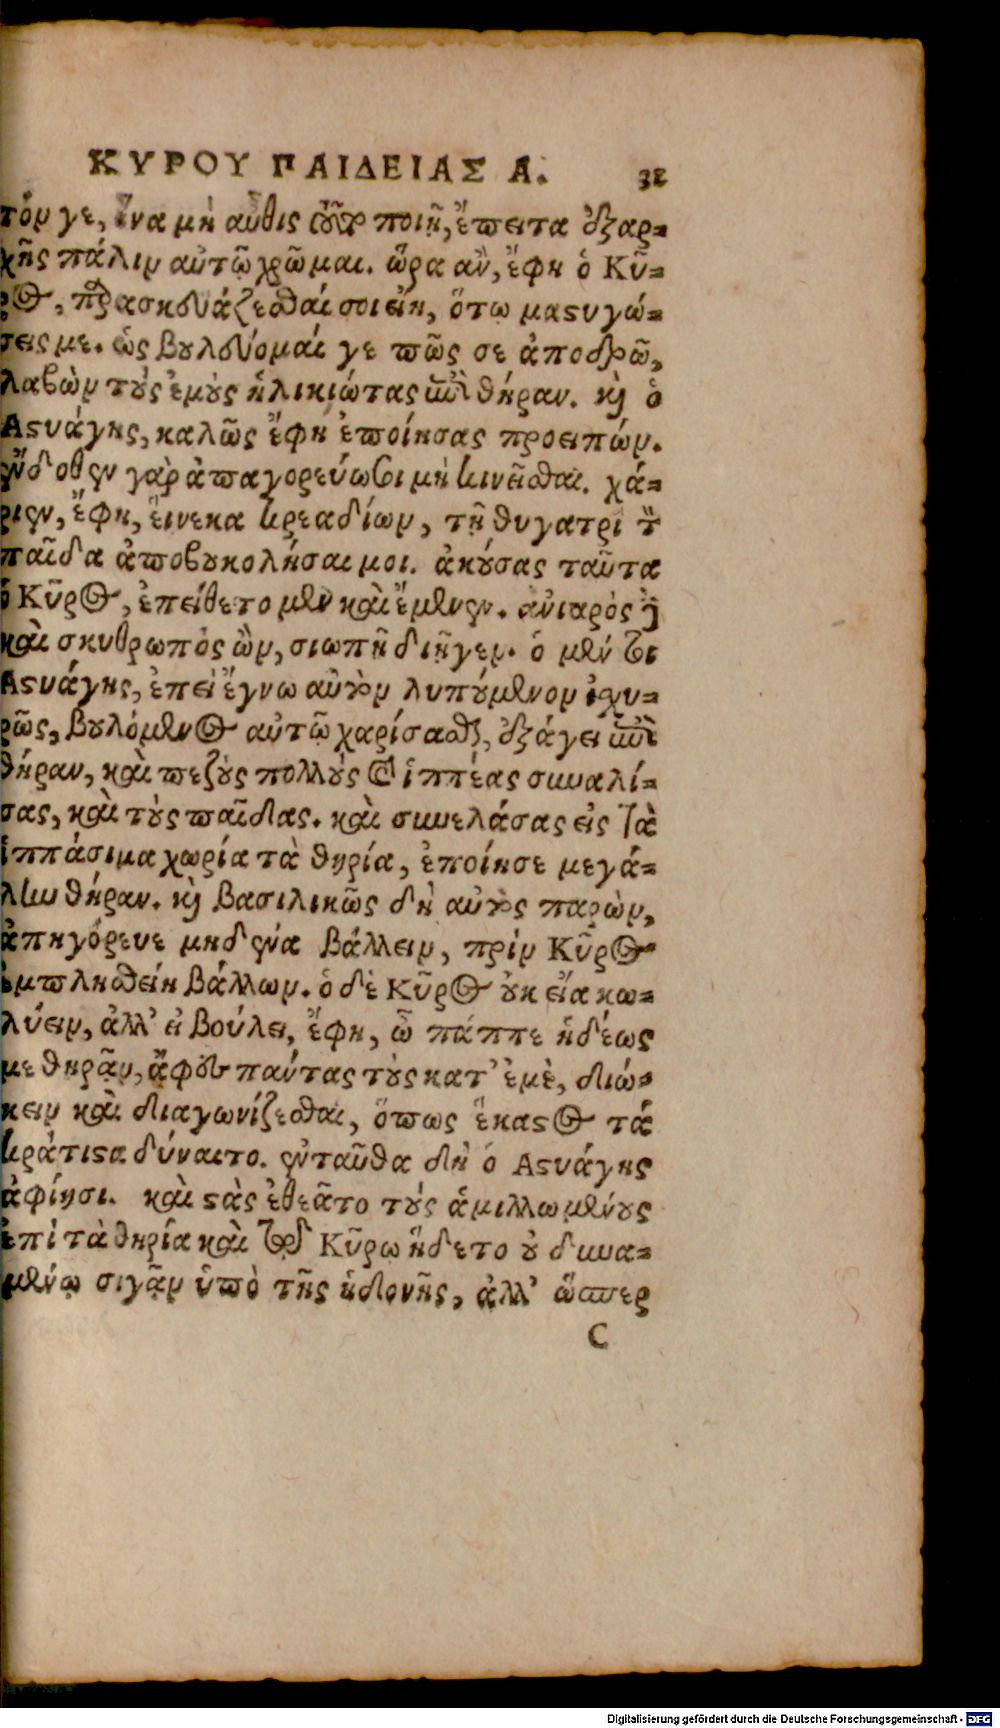 ΚΥΡΟΥ ΠΑΙΔΕΙΑΣ Α. 32
τόν γε, ἵνα μὴ αὖθις τοῦτο ποιῇ, ἔπειτα ἐξαρ-
χῆς πάλιν αὐτῷ χρῶμαι. ὥρα ἂν, ἔφη ὁ Κῦ-
ρος, παρασκευάζεσθαί σοι εἴη, ὅτῳ μαστιγώ-
σεις με. ὡς βουλεύομαί γε πῶς σε ἀποδρῶ,
λαβὼν τοὺς ἐμοὺς ἡλικιώτας ἐπὶ θήραν. καὶ ὁ
Αστυάγης, καλῶς ἔφη ἐποίησας προειπών.
ἔνδοθεν γὰρ ἀπαγορεύω σοι μὴ κινεῖσθαι. χά-
ριεν, ἔφη, εἵνεκα κρεαδίων, τῇ θυγατρὶ τὸν
παῖδα ἀποβουκολήσαιμοι. ἀκούσας ταῦτα
ὁ Κῦρος, ἐπείθετο μὲν καὶ ἔμενεν. ἀνιαρὸς δὲ
καὶ σκυθρωπὸς ὢν, σιωπῇ διῆγεν. ὁ μέν τοι
Αστυάγης, ἐπεὶ ἔγνω αὐτὸν λυπούμενον ἰσχυ-
ρῶς, βουλόμενος αὐτῷ χαρίσασθαι, ἐξάγει ἐπὶ
θήραν, καὶ πεζοὺς πολλοὺς καὶ ἱππέας συναλί-
σας, καὶ τοὺς παῖδας. καὶ συνελάσας εἰς τὰ
ἱππάσιμα χωρία τὰ θηρία, ἐποίησε μεγά-
λην θήραν. καὶ βασιλικῶς δὴ αὐτὸς παρὼν,
ἀπηγόρευε μηδένα βάλλειν, πρὶν Κῦρος
ἐμπλησθείη βάλλων. ὁ δὲ Κῦρος οὐκ εἴα κω-
λύειν, ἀλλ' εἰ βούλει, ἔφη, ὦ πάππε ἡδέως
με θηρᾶν, ἄφες πάντας τοὺς κατ' ἐμὲ, διώ-
κειν καὶ διαγωνίζεσθαι, ὅπως ἕκαστος τά
κράτιστα δύναιτο. ἐνταῦθα δὴ ὁ Αστυάγης
ἀφίησι. καὶ στὰς ἐθεᾶτο τοὺς ἁμιλλωμένους
ἐπὶ τὰ θηρία καὶ τῷ Κύρῳ ἥδετο οὐ δυνα-
μένῳ σιγᾶν ὑπὸ τῆς ἡδονῆς, ἀλλ' ὥσπερ
C
Digitalisierung gefördert durch die Deutsche Forschungsgemeinschaft - DFG